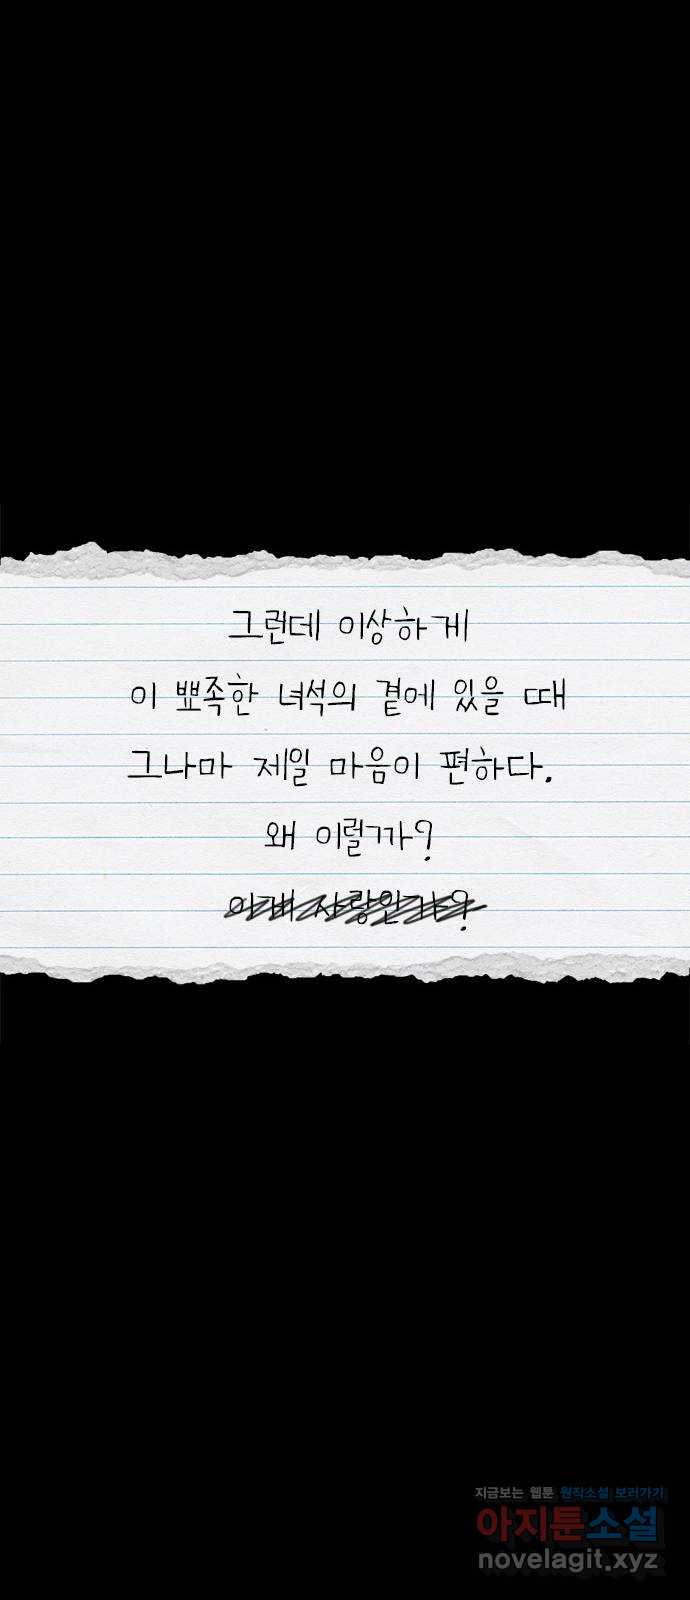 그런데 이상하게
이 뾰족한 녀석의 곁에 있을 때
그나마 제일 마음이 편하다.
왜 이럴까?
이게 사랑인가?
지금보는 웹툰 원작소설 보러가기
아지툰소설
novelagit.xyz